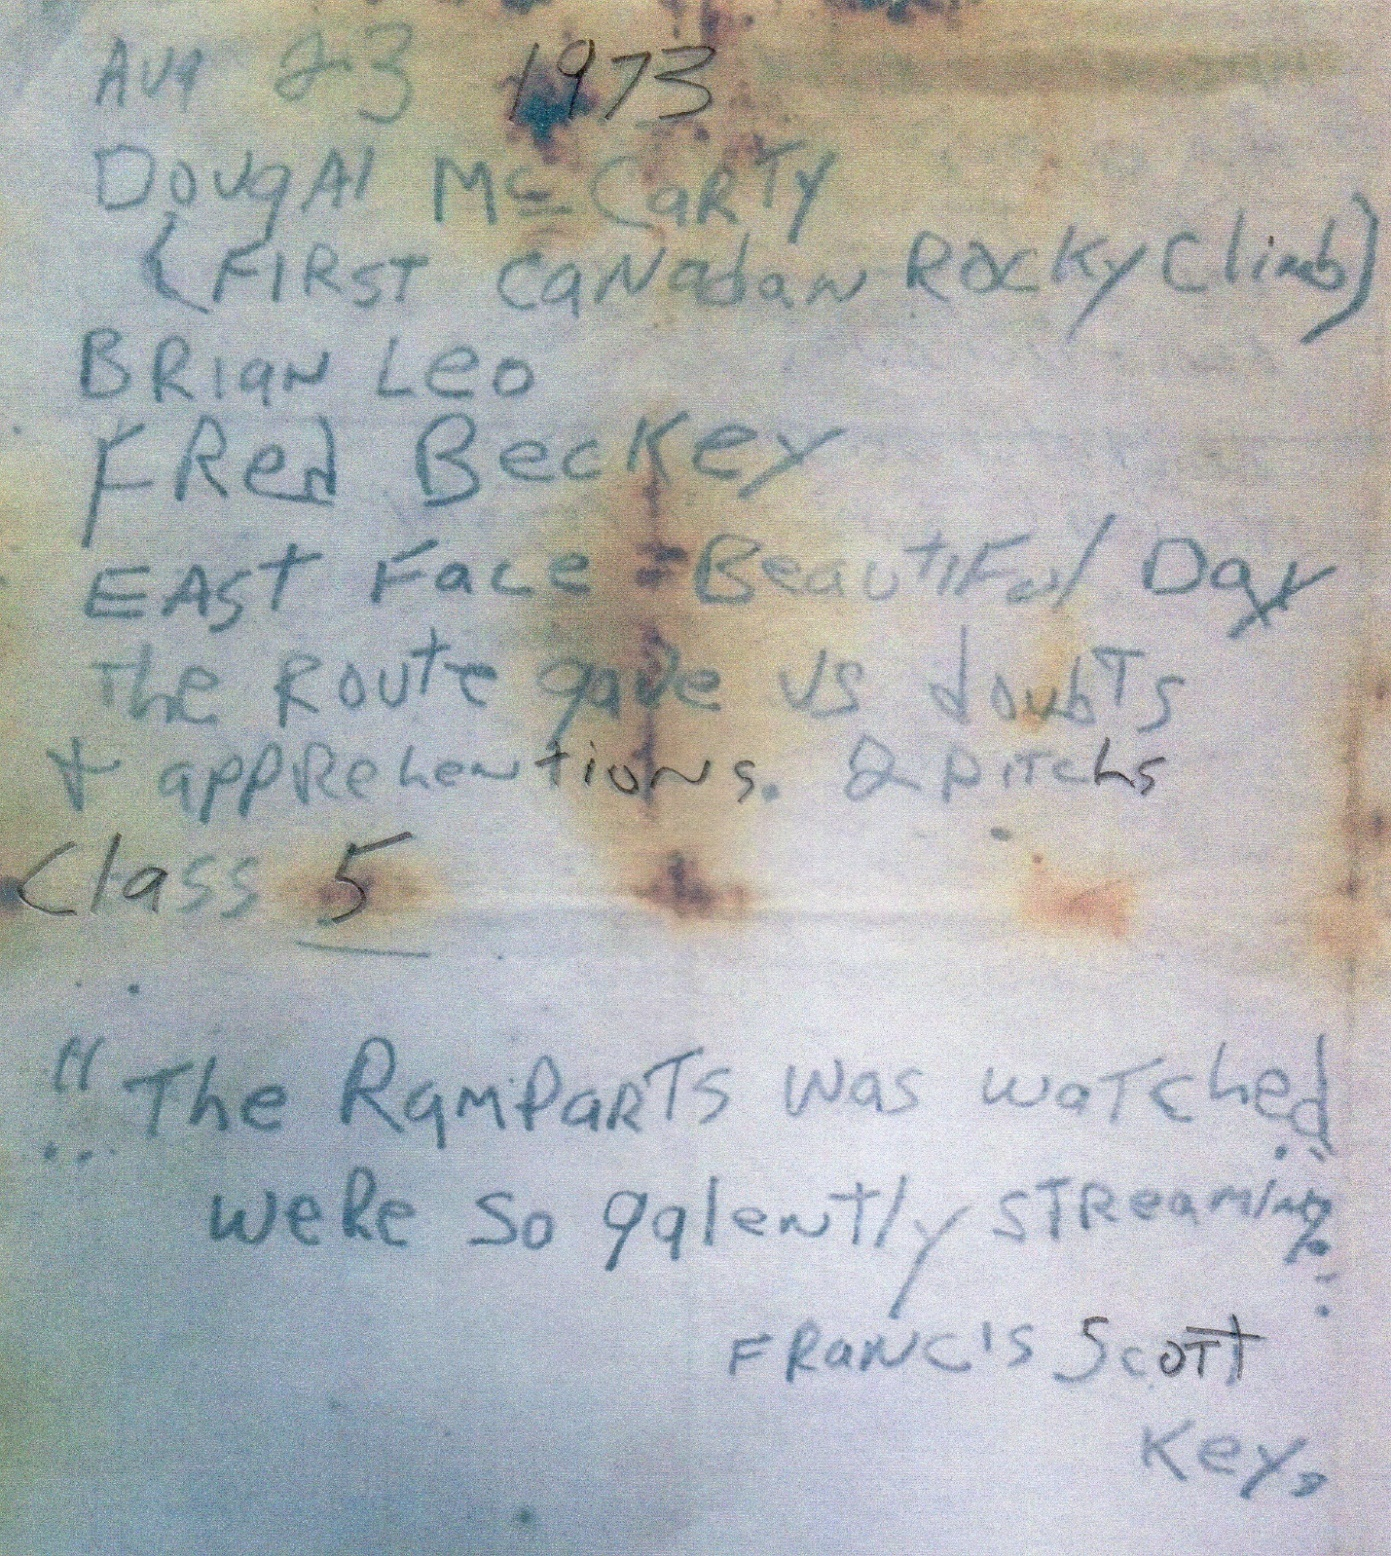 Aug 23 1973
Dougal McCarty
(First Canadian Rocky Climb)
Brian Leo
Fred Beckey
East Face - Beautiful Day
The Route gave us doubts
+ apprehentions. 2 pitchs
Class 5
"The Ramparts was watched
were so galently streaming
Francis Scott
Key,